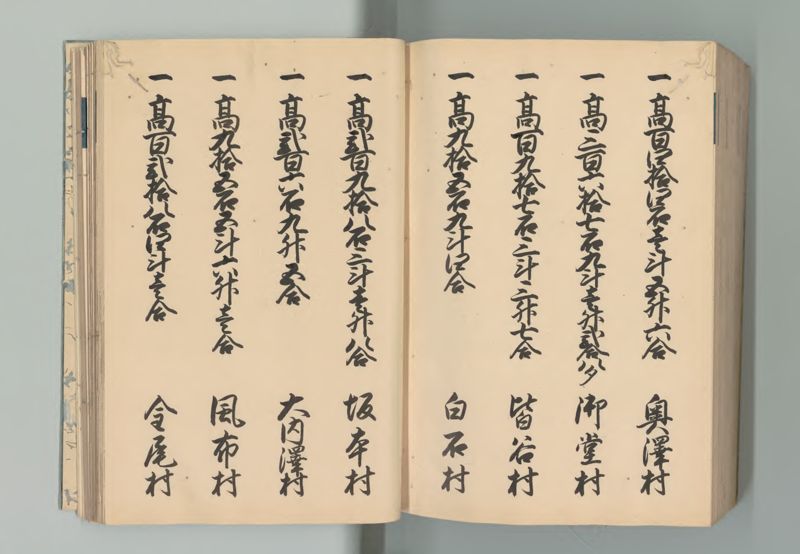 一 高百四拾四石壱斗五升六合 奥澤村
一 高三百六拾七石九斗壱升弐合八夕 御堂村
一 高百九拾七石三斗三升七合 皆谷村
一 高九拾五石九斗四合 白石村
一 高弐百九拾八石三斗壱升八合 坂本村
一 高弐百六石九升五合 大内澤村
一 高九拾五石五斗六升壱合 風布村
一 高百弐拾八石四斗壱合 金尾村